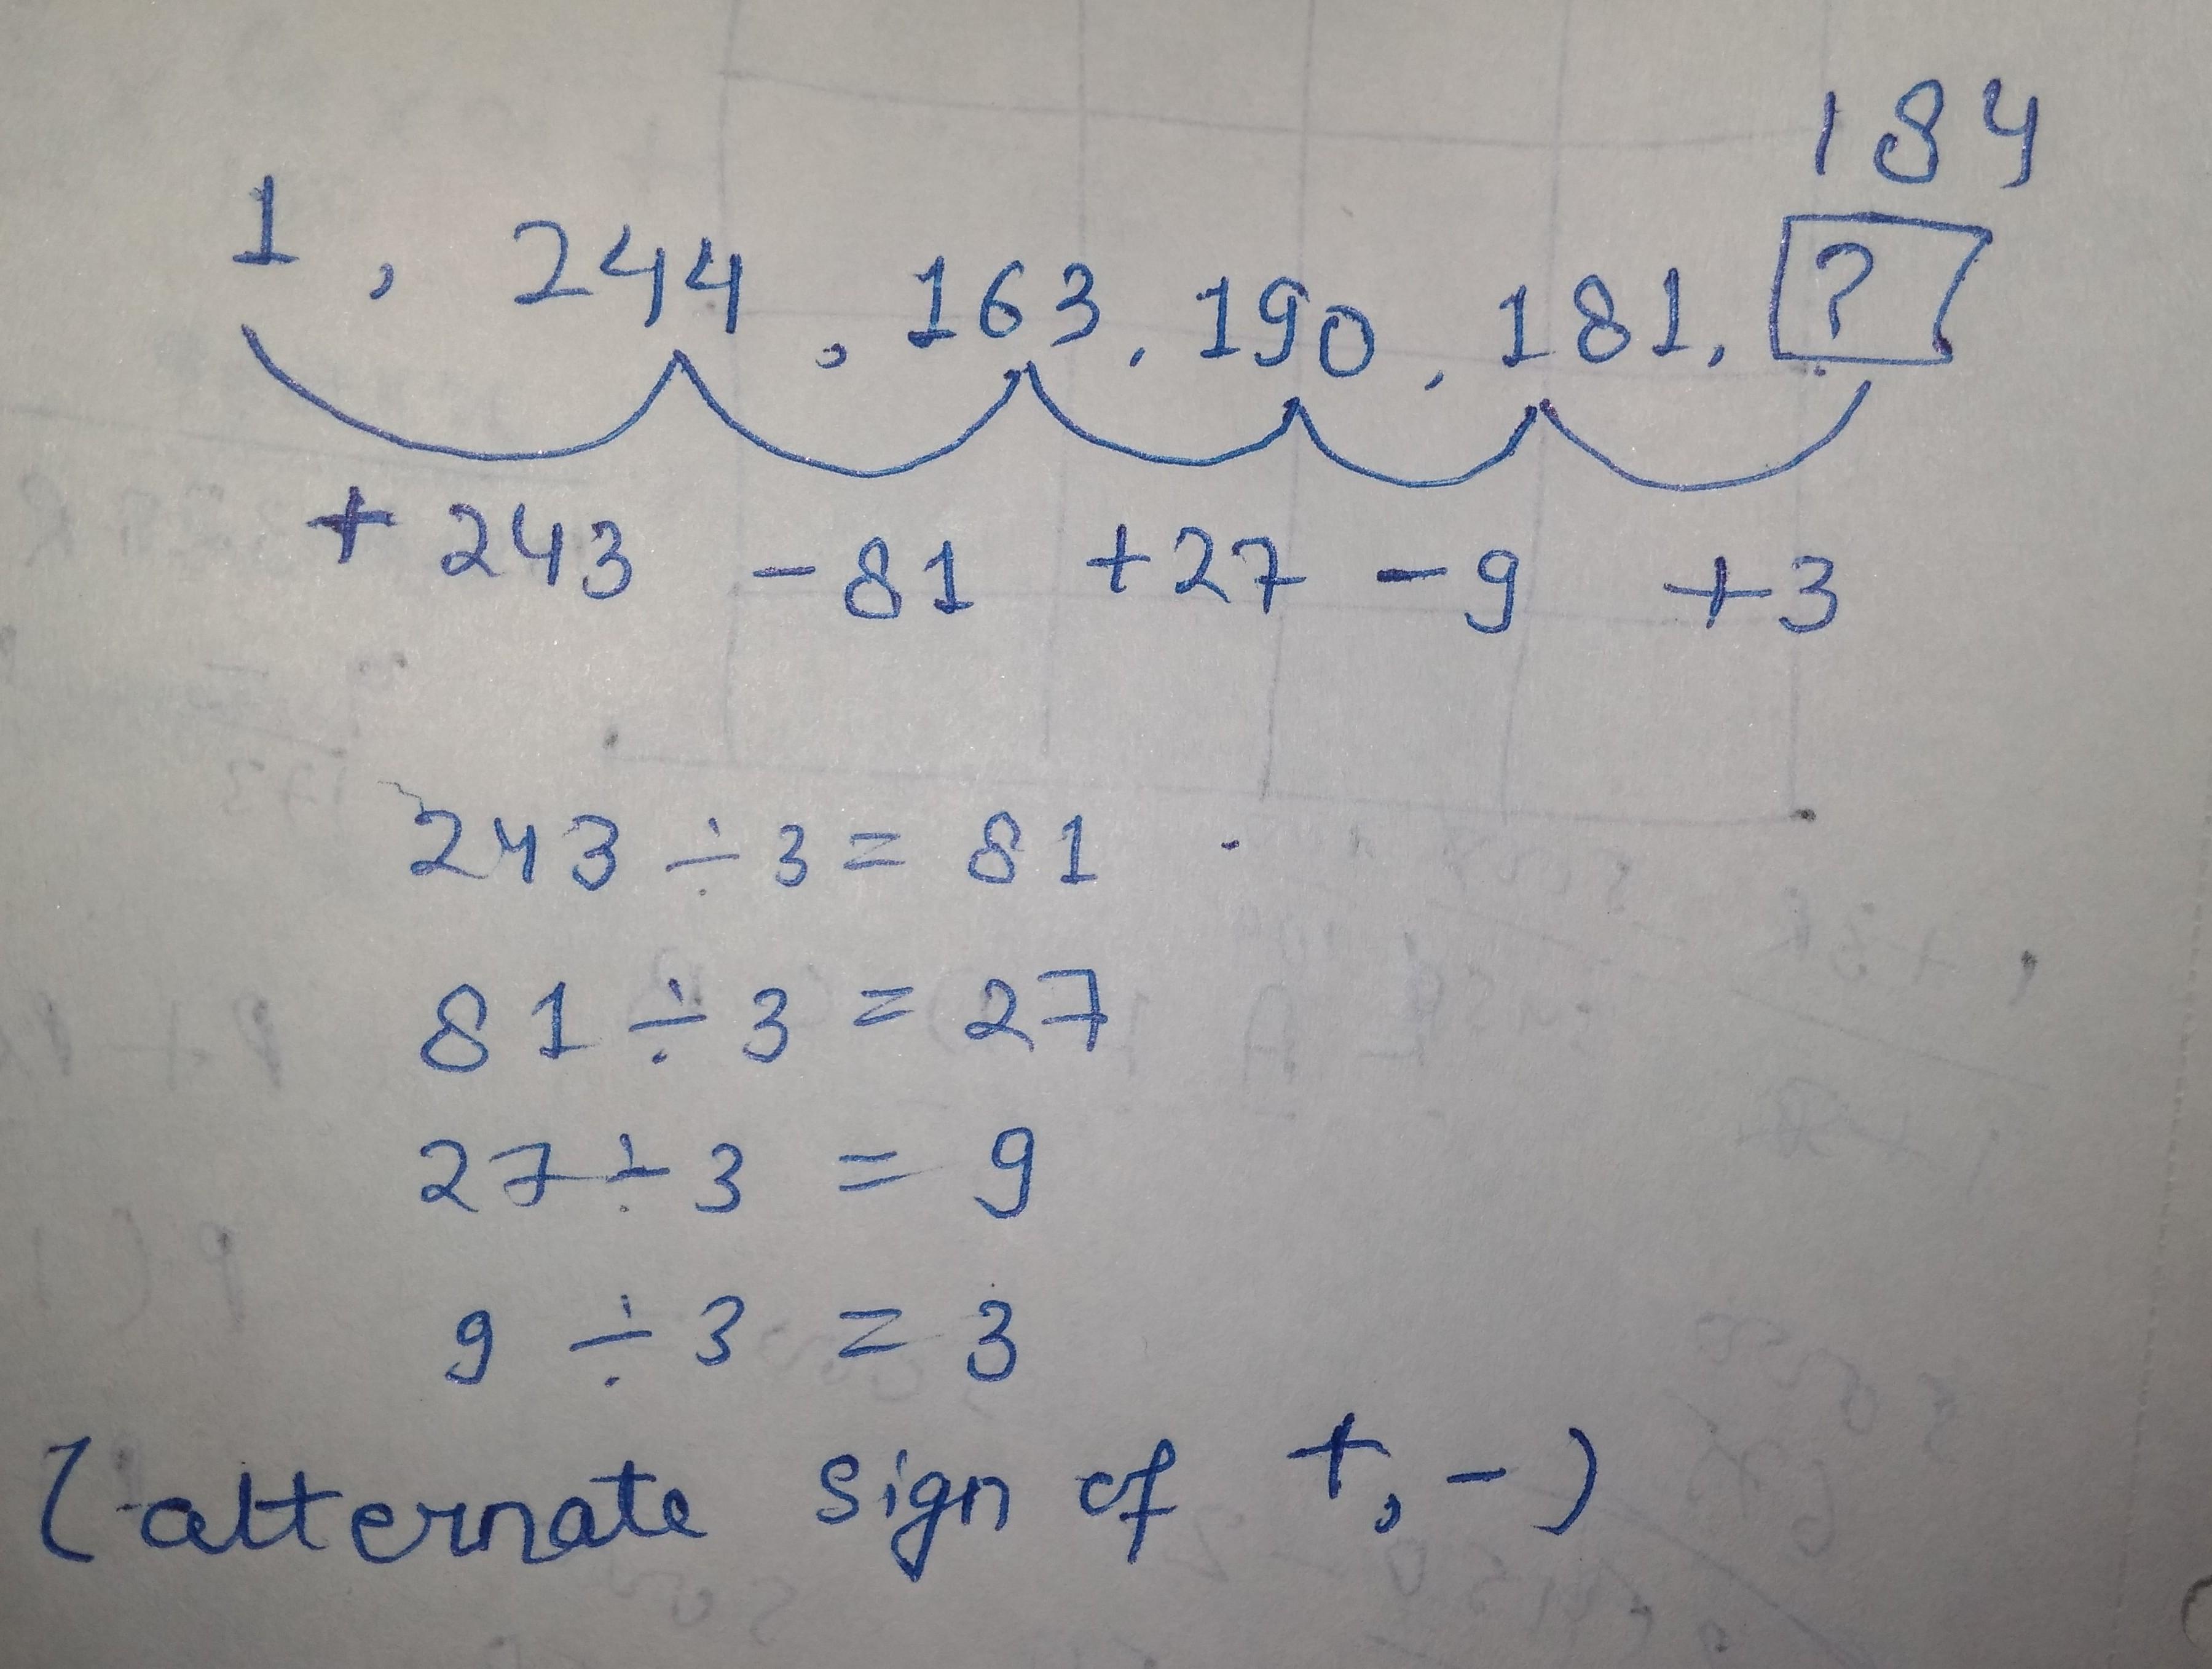 184
1, 244, 163, 190, 181, ?
+243 -81 +27 -9 +3
243 ÷ 3 = 81
81 ÷ 3 = 27
27 ÷ 3 = 9
9 ÷ 3 = 3
(alternate sign of +, -)